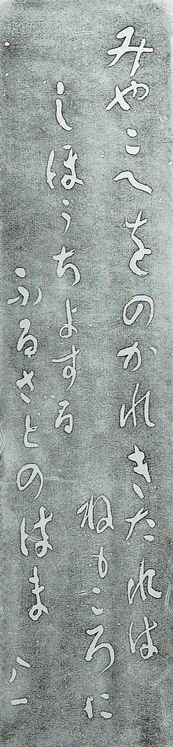 みやこへをのかれきたれは
ねもころに
しほうちよする
ふるさとのはま
八一